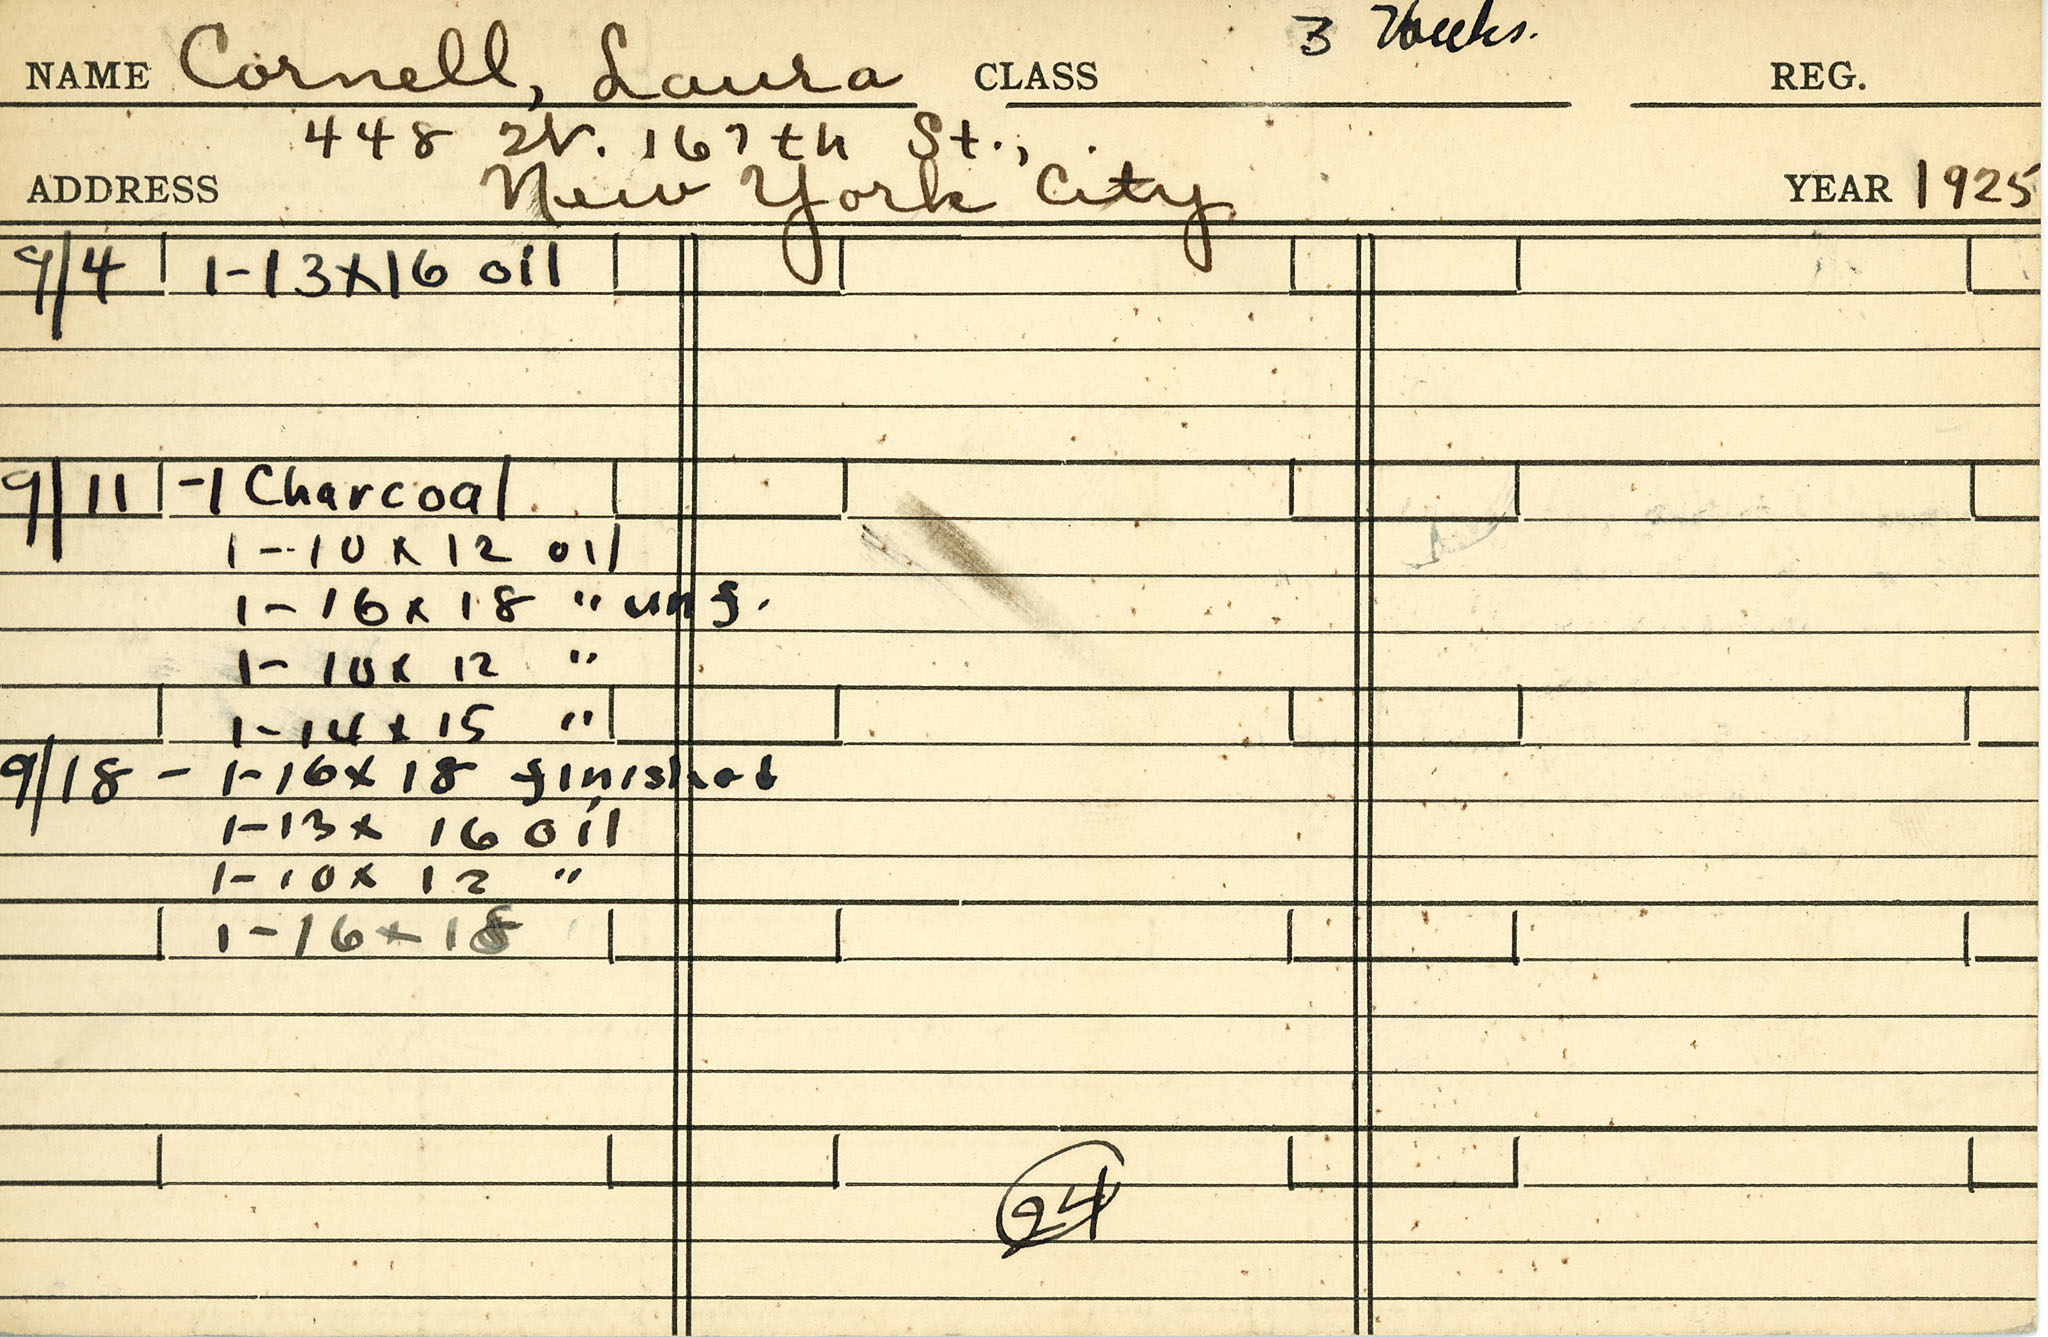 3 Weeks.
NAME Cornell, Laura CLASS REG.
448 W. 167th St.,
ADDRESS New York City YEAR 1925
9/4 1-13x16 oil
9/11 -1 Charcoal
1-10x12 oil
1-16x18 " unf.
1-10x12 "
1-14x15 "
9/18 - 1-16x18 finished
1-13x16 oil
1-10x12 "
1-16x18
24